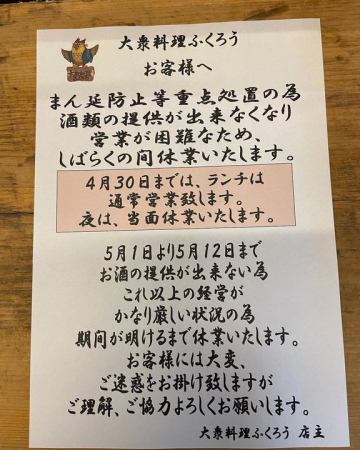 大衆料理ふくろう
お客様へ
まん延防止等重点処置の為
酒類の提供が出来なくなり
営業が困難なため、
しばらくの間休業いたします。
4月30日までは、ランチは
通常営業致します。
夜は、当面休業いたします。
5月1日より5月12日まで
お酒の提供が出来ない為
これ以上の経営が
かなり厳しい状況の為
期間が明けるまで休業いたします。
お客様には大変、
ご迷惑をお掛け致しますが
ご理解、ご協力よろしくお願いします。
大衆料理ふくろう 店主